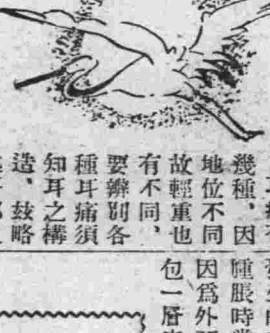 幾種，因
地位不同
故輕重也
有不同，
要辨別各
種耳痛須
知耳之構
造，玆略
腫脹時
因爲外
包一層